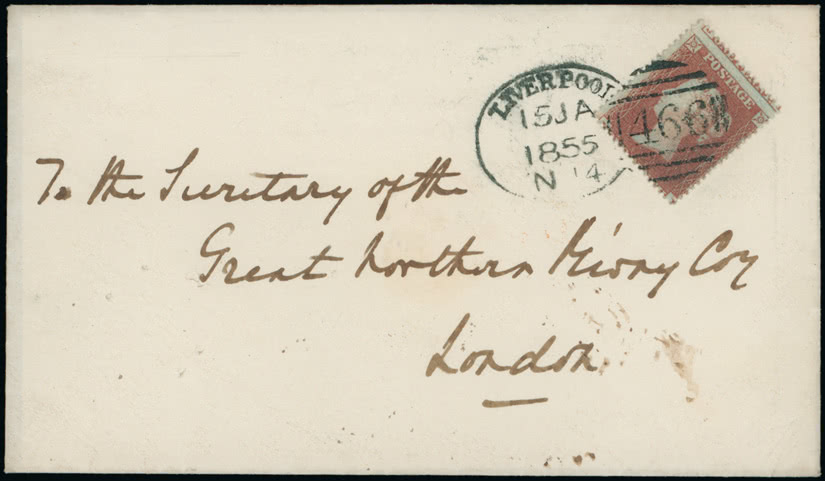 LIVERPOOL
15JA
1855
N 14
466
POSTAGE
To the Secretary of the
Great Northern Rlway Coy
London